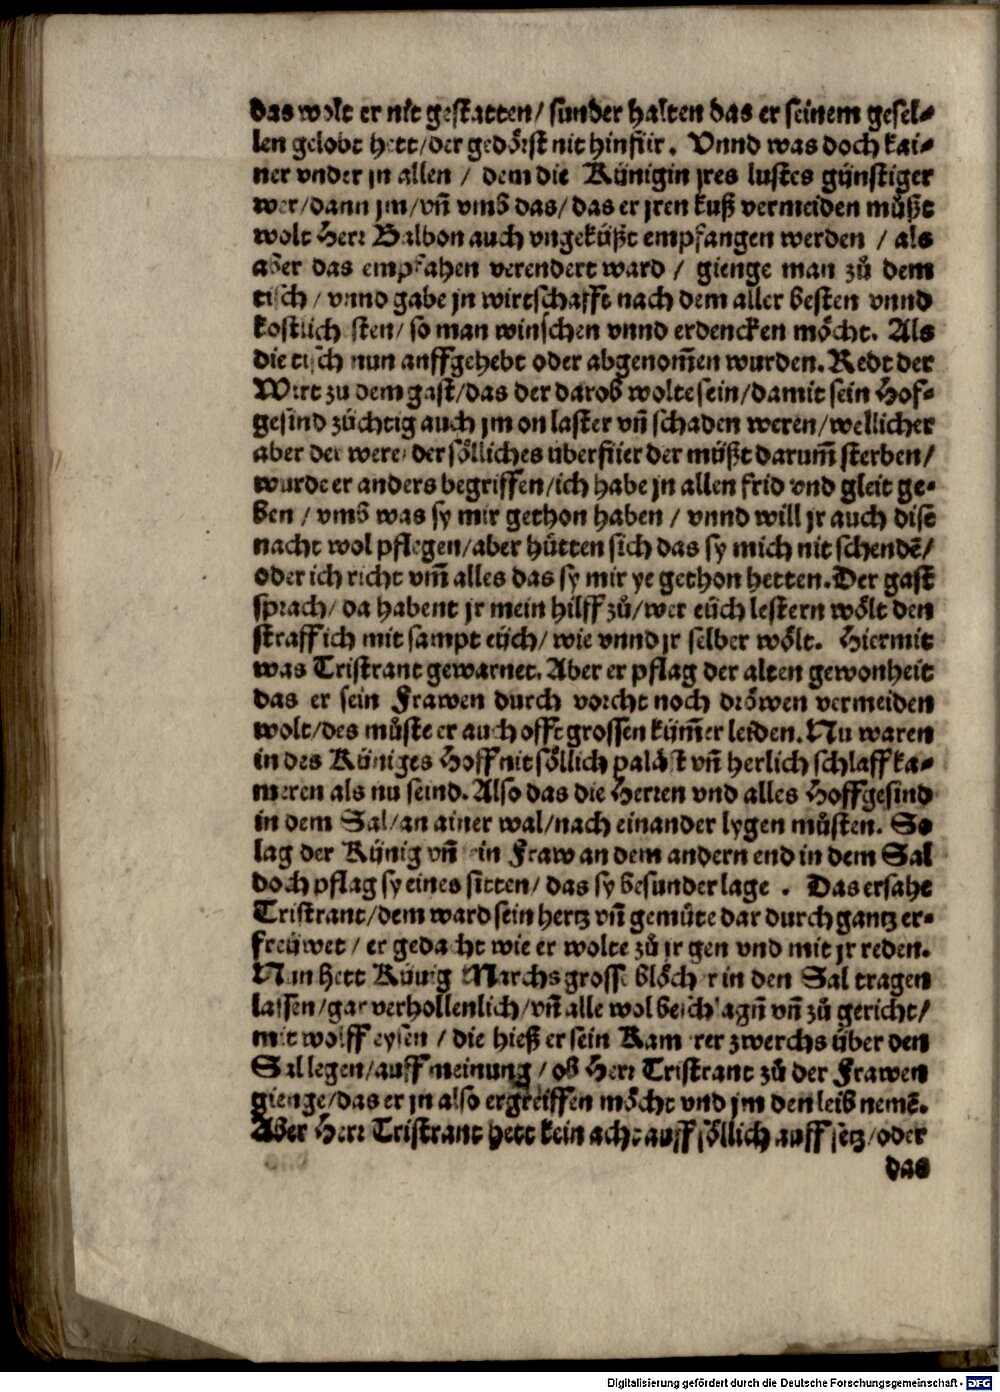 das wolt er nit gestatten/ sunder halten das er seinem gesel⸗
len gelobt hett/der gedörst nit hinfür. Vnnd was doch kai⸗
ner vnder jn allen / dem die Künigin jres lustes günstiger
wer/dann jm/vn̄ vmb das/das er jren kuß vermeiden müßt
wolt Herr Balbon auch vngeküßt empfangen werden / als
aber das empfahen verendert ward / gienge man zů dem
tisch / vnnd gabe jn wirtschafft nach dem aller besten vnnd
kostlich sten/ so man winschen vnnd erdencken möcht. Als
die tisch nun auffgehebt oder abgenom̄en wurden. Redt der
Wirt zu dem gast/das der darob wolte sein/damit sein Hof⸗
gesind züchtig auch jm on laster vn̄ schaden weren/wellicher
aber der were/ der sölliches überfüer der müßt darum̄ sterben/
wurde er anders begriffen/ich habe jn allen frid vnd gleit ge⸗
ben / vmb was sy mir gethon haben / vnnd will jr auch dise
nacht wol pflegen/aber hütten sich das sy mich nit schendē/
oder ich richt vm̄ alles das sy mir ye gethon hetten. Der gast
sprach/ da habent jr mein hilff zů/wer eüch lestern wölt den
straff ich mit sampt eüch/ wie vnnd jr selber wölt. Hiermit
was Tristrant gewarnet. Aber er pflag der alten gewonheit
das er sein Frawen durch vorcht noch dröwen vermeiden
wolt/des můste er auch offt grossen küm̄er leiden. Nu waren
in des Küniges Hoff nit söllich paläst vn̄ herlich schlaff ka⸗
meren als nu seind. Also das die Herren vnd alles Hoffgesind
in dem Sal/an ainer wal/nach einander lygen můsten. So
lag der Künig vn̄ ein Fraw an dem andern end in dem Sal
doch pflag sy eines sitten/ das sy besunder lage . Das ersahe
Tristrant/dem ward sein hertz vn̄ gemüte dar durch gantz er⸗
freüwet / er gedacht wie er wolte zů jr gen vnd mit jr reden.
Nun hett Künig Marchs grosse blöcher in den Sal tragen
lassen/gar verhollenlich/vn̄ alle wol beschlagn̄ vn̄ zů gericht/
mit wolff eysen / die hieß er sein Kamrer zwerchs über den
Sal legen/auff meinung / ob Herr Tristrant zů der Frawen
gienge/das er jn also ergreiffen möcht vnd jm den leib nemē.
Aber Herr Tristrant hett kein acht auff söllich auff setz/oder
das
Digitalisierung gefördert durch die Deutsche Forschungsgemeinschaft - DFG